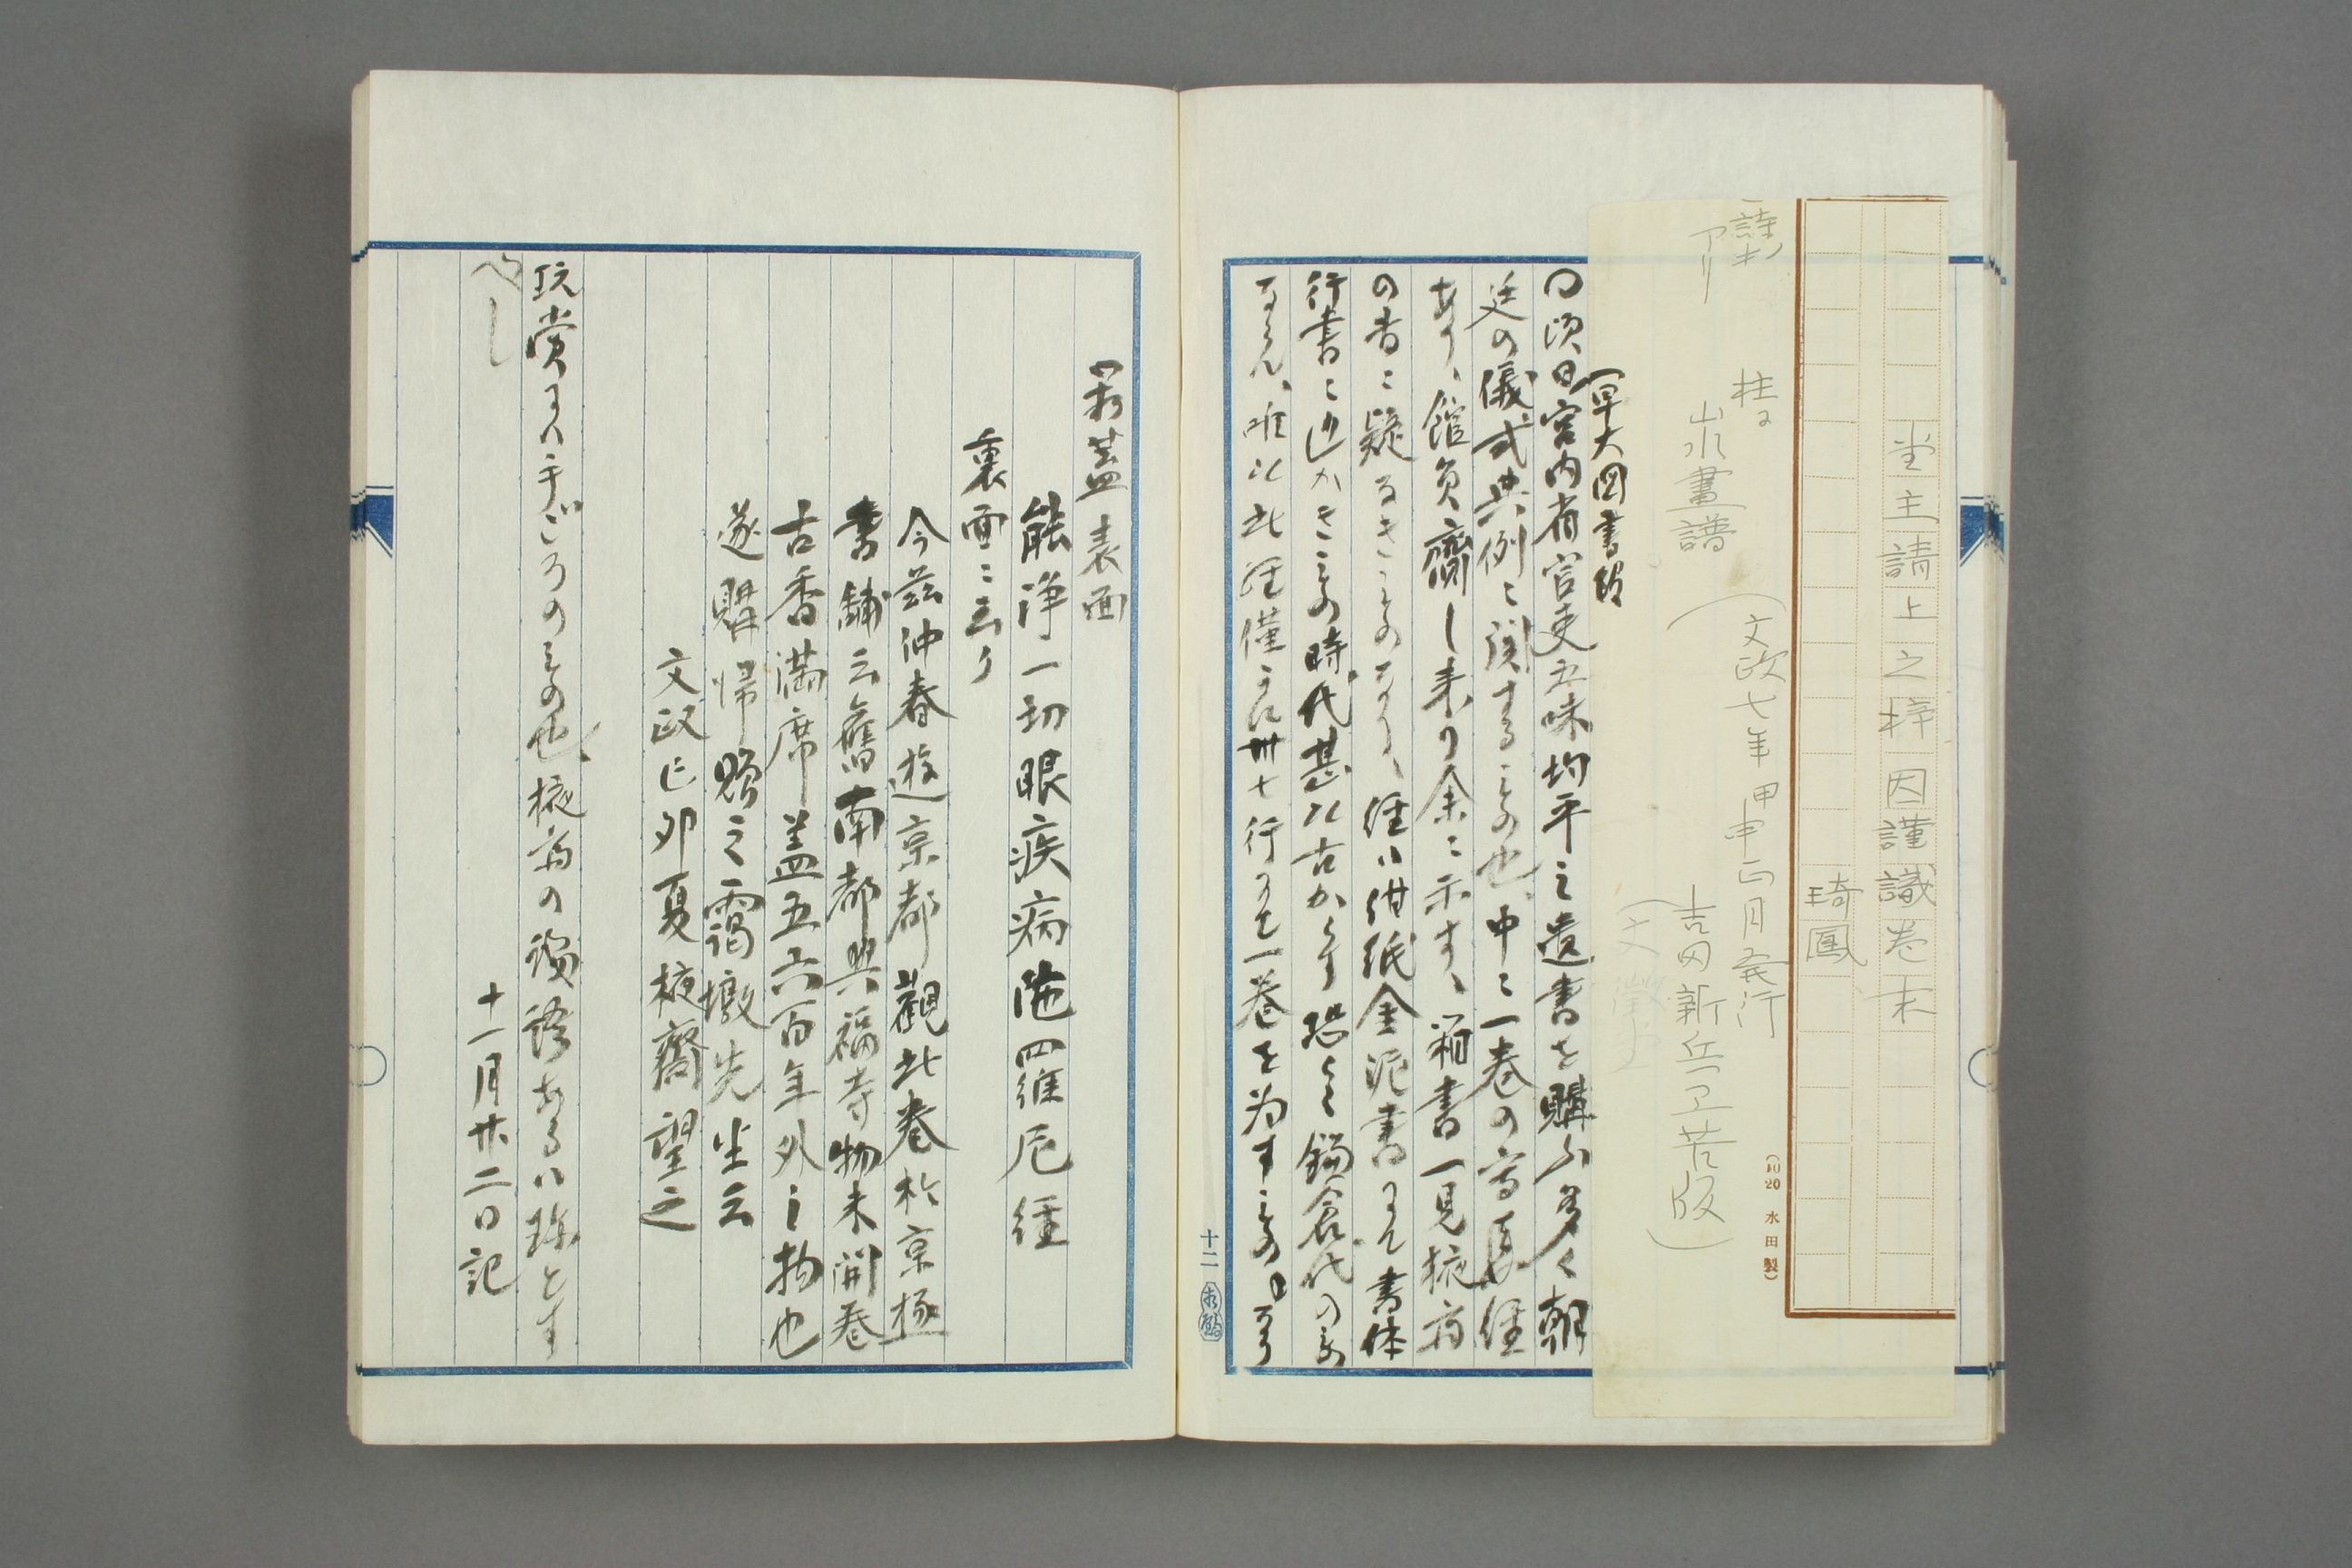 堂主請上之梓因謹識巻末
琦鳳
(10 20 水田製)
アリ
山水畫譜
(文政七年甲申正月発行
吉田新兵衛版)
(早大図書館
○頃日宮内省官吏五味均平之遺書を購ふ多く朝
廷の儀式典例ニ関するもの也、中ニ一巻の写経
あり、館員齎し来り余ニ示す、箱書一見棭斎
の書ニ疑なきものなり、経ハ紺紙金泥書にて書体
行書ニ近かきもの時代甚た古からす恐らく鎌倉代のもの
ならん、唯た此経僅に卅七行にて一巻を為すもの。なり
十二
箱蓋表面
能浄一切眼疾病陀羅尼経
裏面ニ云り
今茲仲春遊京都観此巻於京極
書鋪云舊南都興福寺物未開巻
古香満席蓋五六百年外之物也
遂購帰贈之靄墩先生云
文政己卯夏棭齋望之
玩賞にハ手ごろのもの也棭斎の識語あるハ珍とす
べし
十一月廿二日記